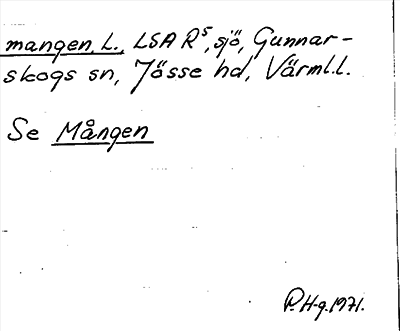 mangen, L., LSA R⁵, sjö, Gunnar-
skogs sn, Jösse hd, Värml.l.
Se Mången
P. H-g. 1971.